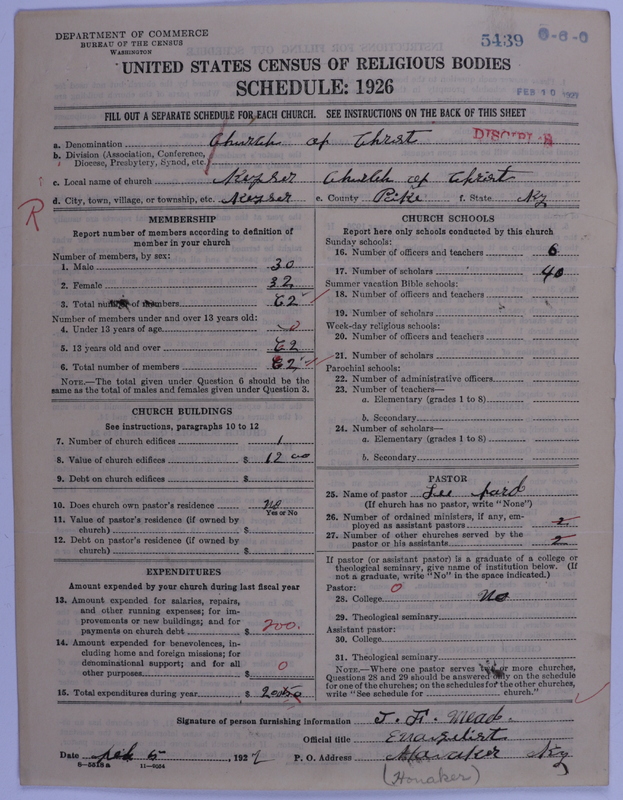 DEPARTMENT OF COMMERCE
BUREAU OF THE CENSUS
WASHINGTON
5439
FEB 10 1927
UNITED STATES CENSUS OF RELIGIOUS BODIES
SCHEDULE: 1926
FILL OUT A SEPARATE SCHEDULE FOR EACH CHURCH. SEE INSTRUCTIONS ON THE BACK OF THIS SHEET
a. Denomination Church of Christ
b. Division (Association, Conference, Diocese, Presbytery, Synod, etc.)
c. Local name of church Keyser Church of Christ
d. City, town, village, or township, etc. Keyser e. County Pike f. State Ky
R
MEMBERSHIP
Report number of members according to definition of
member in your church
Number of members, by sex:
1. Male 30
2. Female 32
3. Total number of members 62
Number of members under and over 13 years old:
4. Under 13 years of age 0
5. 13 years old and over 62
6. Total number of members 62
NOTE.—The total given under Question 6 should be the
same as the total of males and females given under Question 3.
CHURCH BUILDINGS
See instructions, paragraphs 10 to 12
7. Number of church edifices 1
8. Value of church edifices $ 12 00
9. Debt on church edifices $
10. Does church own pastor's residence no
Yes or No
11. Value of pastor's residence (if owned by
church) $
12. Debt on pastor's residence (if owned by
church) $
EXPENDITURES
Amount expended by your church during last fiscal year
13. Amount expended for salaries, repairs,
and other running expenses; for im-
provements or new buildings; and for
payments on church debt $ 200.
14. Amount expended for benevolences, in-
cluding home and foreign missions; for
denominational support; and for all
other purposes $ 0
15. Total expenditures during year $
CHURCH SCHOOLS
Report here only schools conducted by this church
Sunday schools:
16. Number of officers and teachers 6
17. Number of scholars 40
Summer vacation Bible schools:
18. Number of officers and teachers
19. Number of scholars
Week-day religious schools:
20. Number of officers and teachers
21. Number of scholars
Parochial schools:
22. Number of administrative officers
23. Number of teachers—
a. Elementary (grades 1 to 8)
b. Secondary
24. Number of scholars—
a. Elementary (grades 1 to 8)
b. Secondary
PASTOR
25. Name of pastor
(If church has no pastor, write "None")
26. Number of ordained ministers, if any, em-
ployed as assistant pastors 2
27. Number of other churches served by the
pastor or his assistants 2
If pastor (or assistant pastor) is a graduate of a college or
theological seminary, give name of institution below. (If
not a graduate, write "No" in the space indicated.)
Pastor: 0
28. College No
29. Theological seminary
Assistant pastor:
30. College
31. Theological seminary
NOTE.—Where one pastor serves two or more churches,
Questions 28 and 29 should be answered only on the schedule
for one of the churches; on the schedules for the other churches,
write "See schedule for church."
Signature of person furnishing information J. F. Mead
Official title Evangelist
Date Feb 5, 1927 P. O. Address Honaker Ky
8-5518a 11-9034
(Honaker)